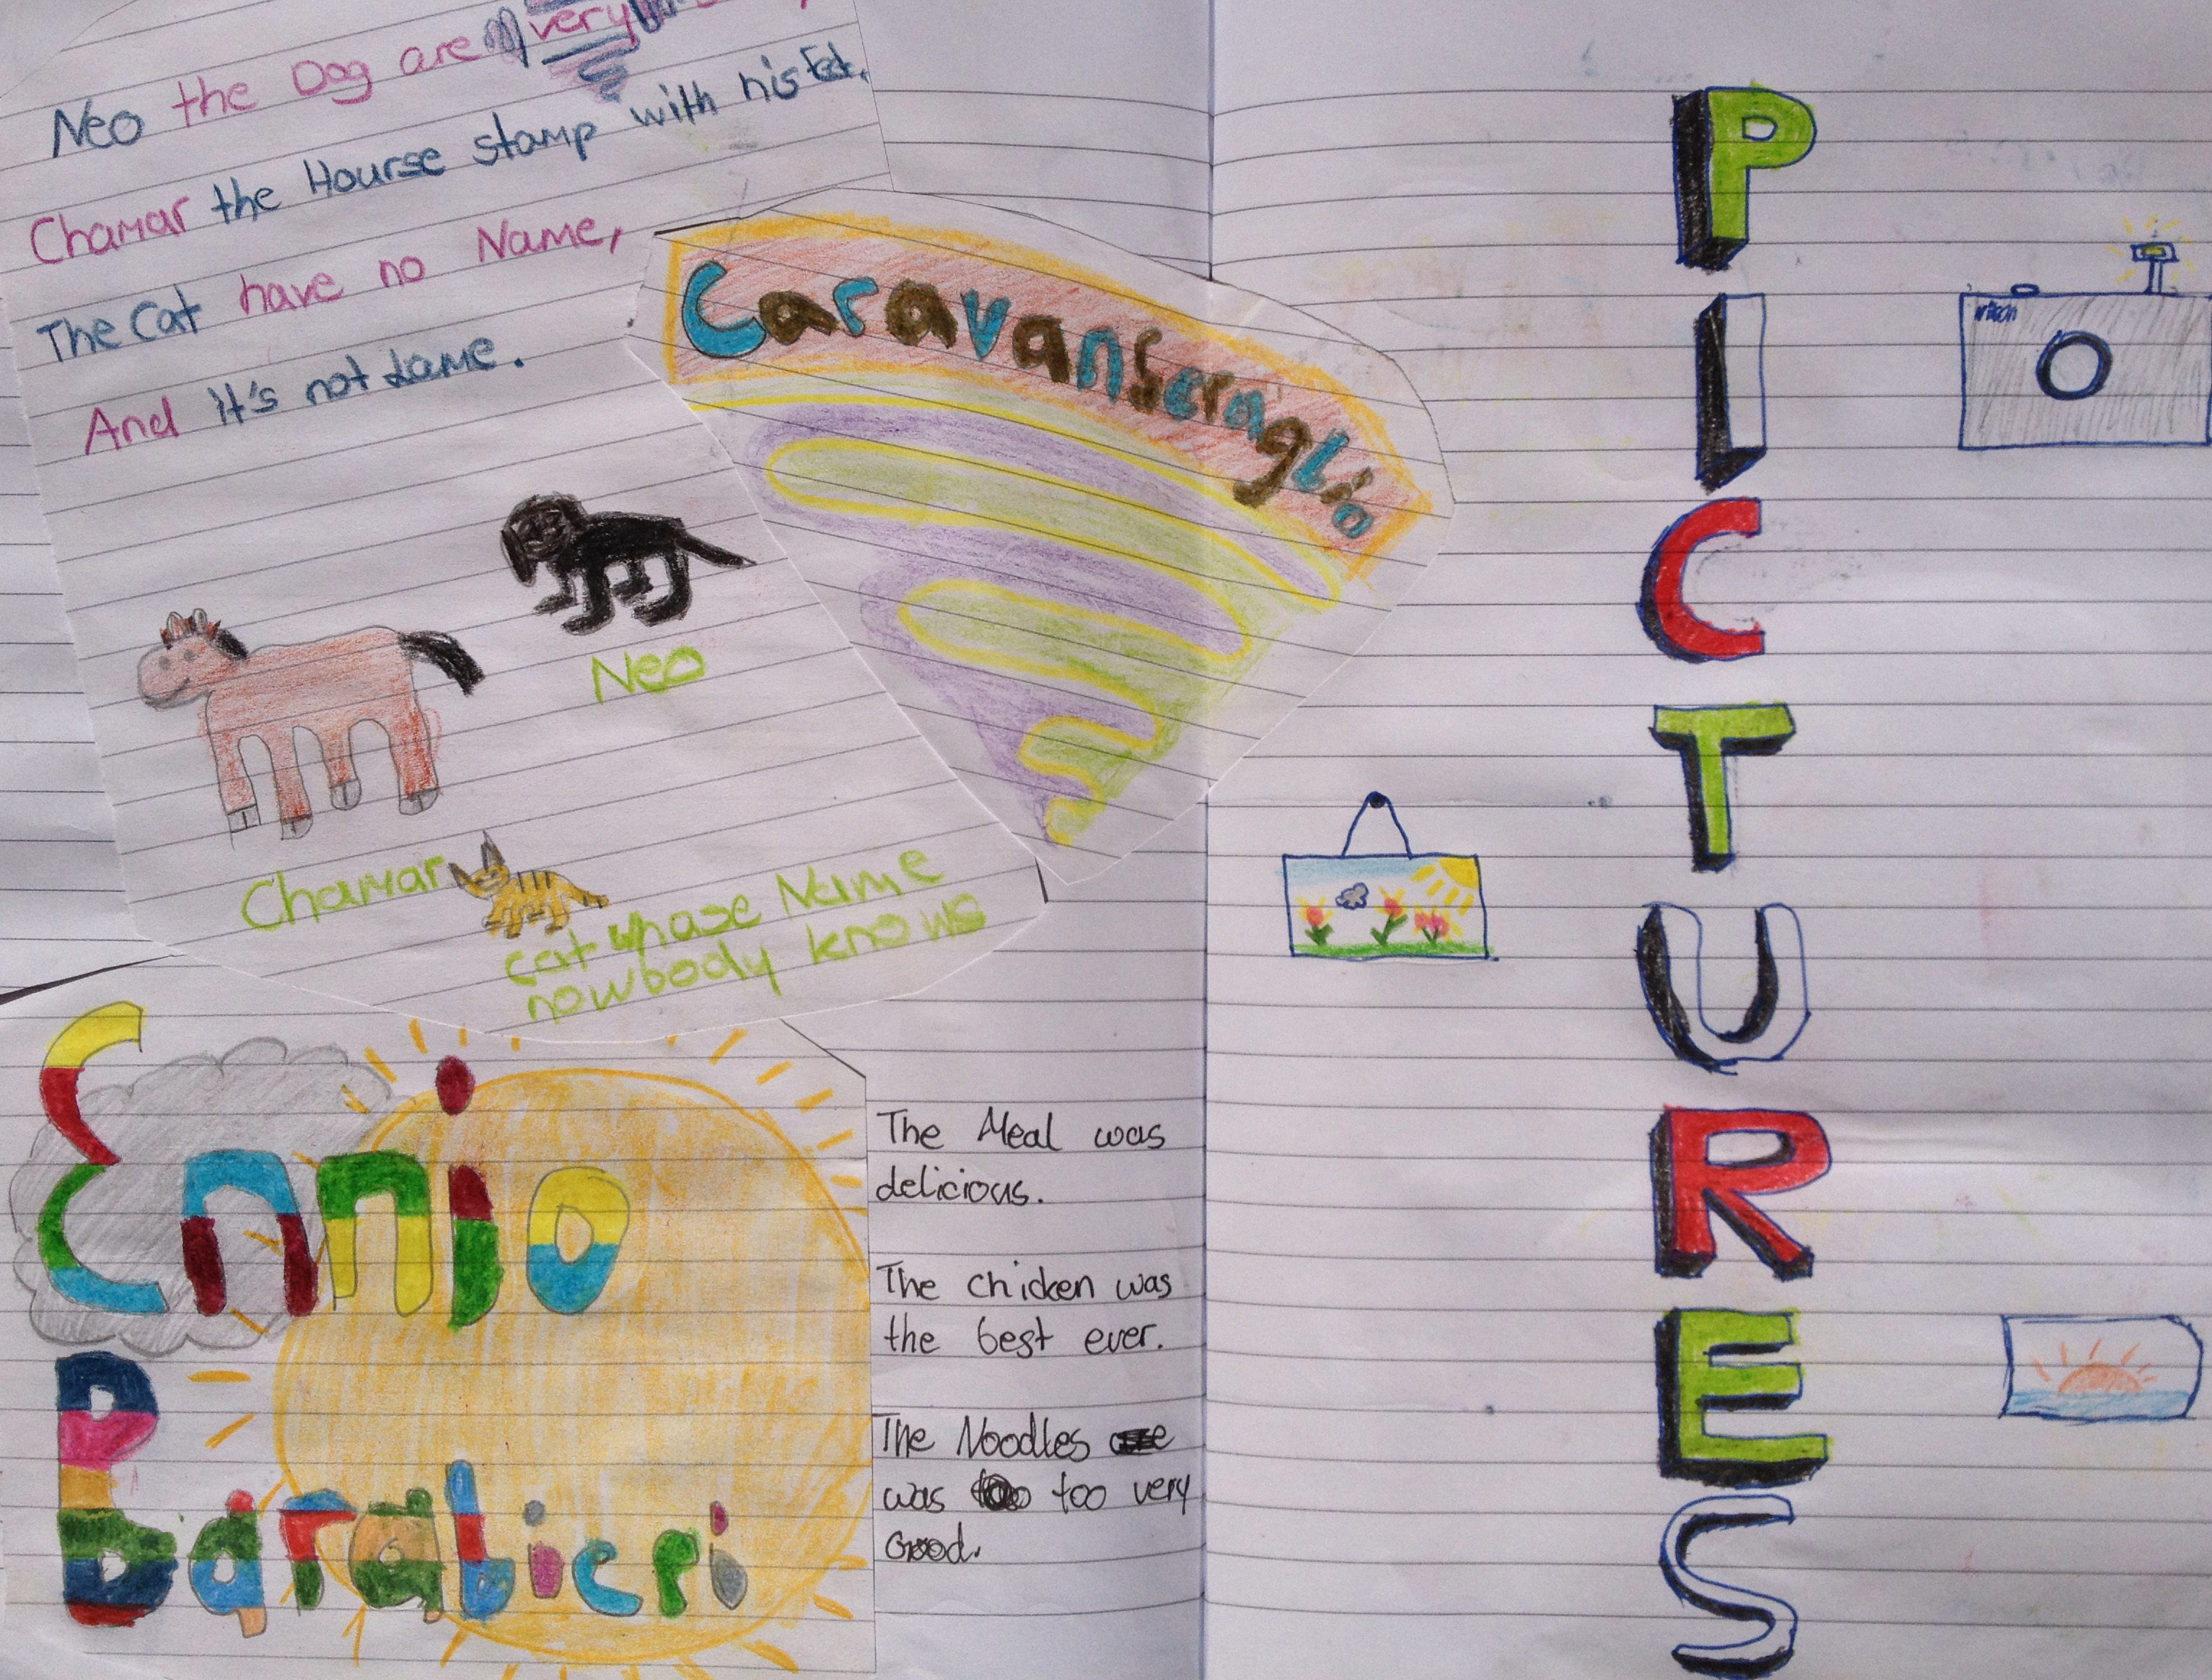 Neo the Dog are very
Chamar the Hourse stamp with his
The Cat have no Name,
And it's not Lame.
Neo
Chamar
cat whase Name
nowbody knows
Caravanseraglio
Ennio
Baralieri
The Meal was
delicious.
The chicken was
the best ever.
The Noodles
was too very
Good.
PICTURES